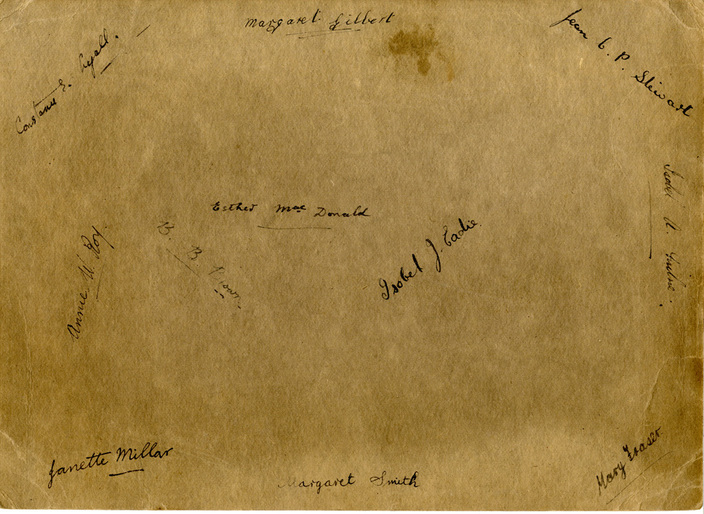 Margaret Gilbert
Constance E. Lyall.
Jean C. P. Stewart
Isobel
Esther MacDonald
Annie W. Roy.
B. B.
Isobel J. Eadie.
Janette Millar
Margaret Smith
Mary Fraser